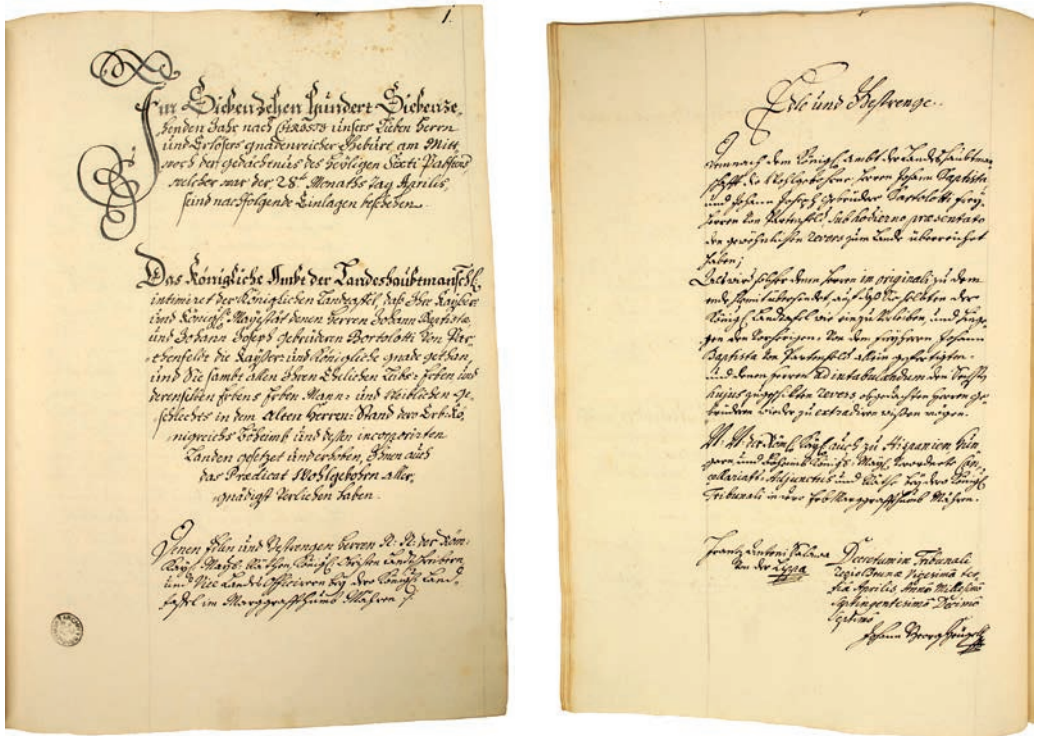 1.
Im Siebenzehen Hundert Siebenze-
henden Jahr nach CHRISTO unsers Lieben Herrn
und Erlösers gnadenreicher Gebührt am Mitt-
woch der gedächtnus des heyligen
welcher war der 28te Monaths Tag Aprilis,
seind nachfolgende Einlagen beschehen.
Das Königliche Ambt der Landeshaubtmansch:
intimiret der Königlichen Landtaffel, daß Ihre Kayser:
und Königl: Mayestät denen Herren Johann Baptista,
und Johann Joseph Gebrüderen Bortolotti von Par-
thenfeldt die Kayser: und Königliche gnade gethan,
und Sie sambt allen Ihren Ehelichen Leibs-Erben und
derenselben Erbens Erben Mann- und Weiblichen Ge-
schlechts in dem Alten Herren-Stand dero Erb-Kö-
nigreichs Böheimb und dessen incorporirten
Landen gesetzet und erhoben, Ihnen auch
das Prædicat Wohlgebohrn aller-
gnädigst Verliehen haben.
Denen Edlen und Gestrengen Herren N: N: der Röm:
Kay: May: Räthen, Königl: Obristen Landschreibern
und Vice Landes Officirern bey der Königl: Land-
taffel im Marggraffthumb Mähren
Edle und Gestrenge.
Demnach dem Königl: Ambt der Landeshaubtman-
schafft die Wohlgebohrne Herren Johann Baptista
und Johann Joseph Gebrüder Bartolotti Frey-
herren von Partenfeldt sub hodierno præsentato
den gewöhnlichen Revers zum Lande überreichet
haben;
Als wird solcher denen Herren in originali zu dem
ende hiemit übersendet, auf daß Sie solchen der
Königl: Landtafel einzuverleiben, und hinge-
gen den Vorherigen von dem Freyherrn Johann
Baptista von Partenfeldt allein gefertigten
und denen Herren ad intabulandum den
hujus zugeschikten Revers obgedachten Herren Ge-
brüdern wieder zu extradiren wißen mögen.
N: N: der Röm: Kay: auch zu Hispanien, Hun-
garn, und Böheimb Königl: May: Verordnete Can-
cellariats-Adjunctus und Räthe bey dero Königl:
Tribunali in dero Erb-Marggraffthumb Mähren.
Frantz Antoni
von der Lyppa
Decretum in Tribunali
Regio Brunæ Vicesima ter-
tia Aprilis, Anno Millesimo
Septingentesimo Decimo
Septimo
Johann Georg